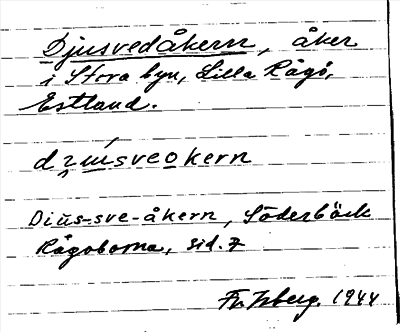 Djusvedåkern, åker
i Stora byn, Lilla Rågö,
Estland.
dzi̯úsveokern
Diüs-sve-åkern, Söderbäck
Rågöborna, sid. 7
1944